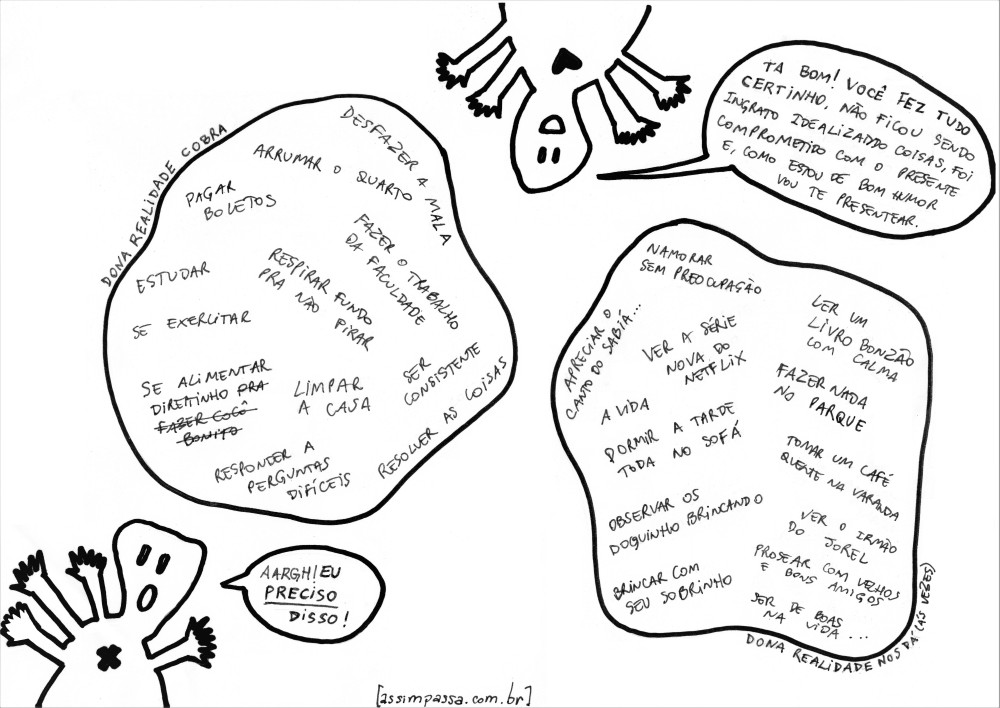 DONA REALIDADE COBRA
DESFAZER A MALA
ARRUMAR O QUARTO
PAGAR
BOLETOS
FAZER O TRABALHO
DA FACULDADE
RESPIRAR FUNDO
PRA NÃO
PIRAR
ESTUDAR
SE EXERCITAR
SE ALIMENTAR
DIREITINHO PRA
FAZER COCÔ
BONITO
LIMPAR
A CASA
SER
CONSISTENTE
RESOLVER AS COISAS
RESPONDER A
PERGUNTAS
DIFÍCEIS
AARGH! EU
PRECISO
DISSO!
TÁ BOM! VOCÊ FEZ TUDO
CERTINHO, NÃO FICOU SENDO
INGRATO IDEALIZADDO COISAS, FOI
COMPROMETIDO COM O PRESENTE
E, COMO ESTOU DE BOM HUMOR
VOU TE PRESENTEAR.
NAMORAR
SEM PREOCUPAÇÃO
APRECIAR O
CANTO DO SABIÁ...
LER UM
LIVRO BONZÃO
COM CALMA
VER A SÉRIE
NOVA DO
NETFLIX
FAZER NADA
NO PARQUE
A VIDA
DORMIR A TARDE
TODA NO SOFÁ
TOMAR UM CAFÉ
QUENTE NA VARANDA
OBSERVAR OS
DOGUINHO BRINCANDO
VER O IRMÃO
DO JOREL
PROSEAR COM VELHOS
E BONS AMIGOS
BRINCAR COM
SEU SOBRINHO
SER DE BOAS
NA VIDA ...
DONA REALIDADE NOS DÁ (ÀS VEZES)
[assimpassa.com.br]